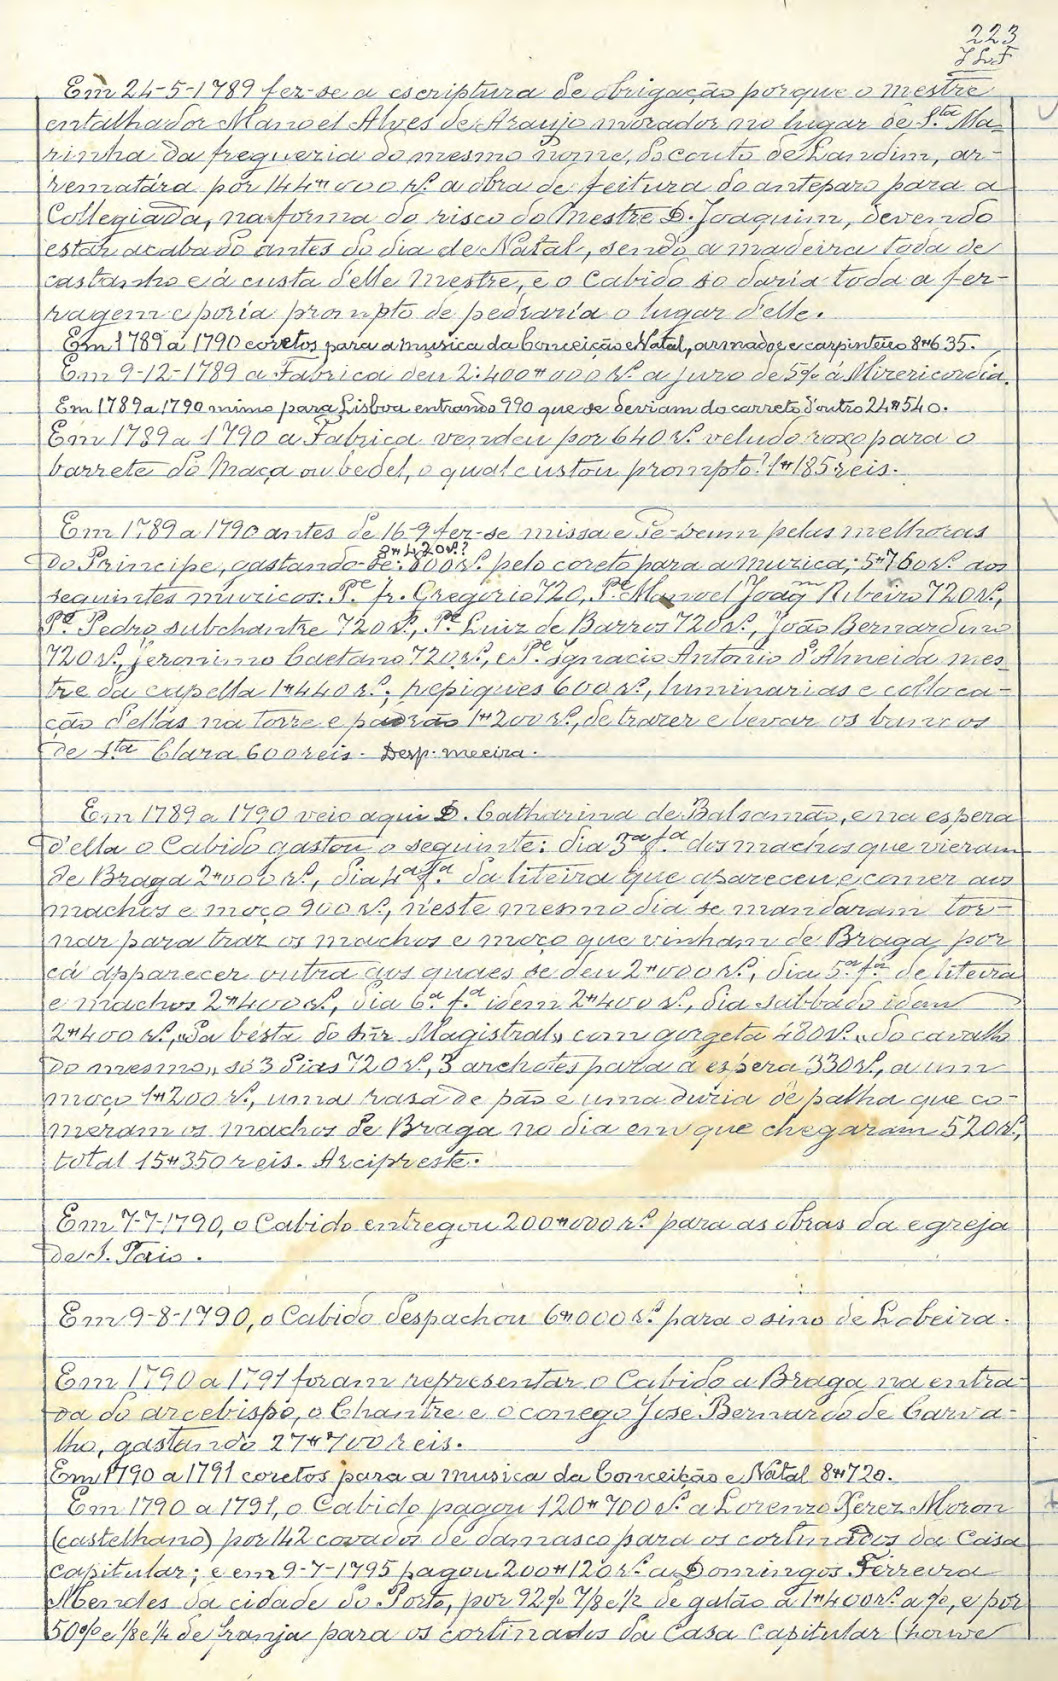 223
Em 24-5-1789 fez-se a escriptura de obrigação porque o mestre
entalhador Manoel Alves de Araujo morador no lugar de S.ta Ma-
rinha da freguezia do mesmo nome, do couto de Landim, ar-
rematára por 144#000 r.s a obra de feitura do anteparo para a
Collegiada, na forma do risco do Mestre D. Joaquim, devendo
estar acabado antes do dia de Natal, sendo a madeira toda de
castanho e á custa d'elle Mestre, e o Cabido so daria toda a fer-
ragem e poria prompto de pedraria o lugar d'elle.
Em 1789 a 1790 coretos para a musica da Conceição e Natal, armador e carpinteiro 8#635.
Em 9-12-1789 a Fabrica deu 2:400#000 r.s a juro de 5% á Mizericordia.
Em 1789 a 1790 mimo para Lisboa entrando 990 que se deviam do carreto d'outro 24#540.
Em 1789 a 1790 a Fabrica vendeu por 640 r.s veludo roxo para o
barrete do Maça ou bedel, o qual custou prompto? 1#185 reis.
Em 1789 a 1790 antes de 16-9 fez-se missa e Te-Deum pelas melhoras
8#420 r.s?
do Principe, gastando-se: 800 r.s pelo coreto para a muzica; 5#760 r.s aos
seguintes muzicos: P.e Fr. Gregorio 720, P.e Manoel Joaq.m Ribeiro 720 r.s,
P.e Pedro subchantre 720 r.s, P.e Luiz de Barros 720 r.s, João Bernardino
720 r.s, Jeronimo Caetano 720 r.s, e P.e Ignacio Antonio d'Almeida mes-
tre da capella 1#440 r.s; repiques 600 r.s, luminarias e colloca-
ção d'ellas na torre e padrão 1#200 r.s, de trazer e levar os bancos
de S.ta Clara 600 reis. Desp. meeira.
Em 1789 a 1790 veio aqui D. Catharina de Balsamão, e na espera
d'ella o Cabido gastou o seguinte: dia 3.a f.a dos machos que vieram
de Braga 2#000 r.s, dia 4.a f.a da liteira que apareceu e comer aos
machos e moço 900 r.s, n'este mesmo dia se mandaram tor-
nar para traz os machos e moço que vinham de Braga por
cá apparecer outra aos quaes se deu 2#000 r.s, dia 5.a f.a de liteira
e machos 2#400 r.s, dia 6.a f.a idem 2#400 r.s, dia sabbado idem
2#400 r.s, „da bésta do Snr. Magistral„ com gorgeta 480 r.s „do cavallo
do mesmo„ só 3 dias 720 r.s, 3 archotes para a espera 330 r.s, a um
moço 1#200 r.s, uma rasa de pão e uma duzia de palha que co-
meram os machos de Braga no dia em que chegaram 520 r.s,
total 15#350 reis. Arcipreste.
Em 7-7-1790, o Cabido entregou 200#000 r.s para as obras da egreja
de S. Paio.
Em 9-8-1790, o Cabido despachou 6#000 r.s para o sino de Lobeira.
Em 1790 a 1791 foram representar o Cabido a Braga na entra-
da do arcebispo, o Chantre e o conego José Bernardo de Carva-
lho, gastando 27#700 reis.
Em 1790 a 1791 coretos para a musica da Conceição e Natal 8#720.
Em 1790 a 1791, o Cabido pagou 120#700 r.s a Lorenzo Xerez Moron
(castelhano) por 142 covados de damasco para os cortinados da Casa
capitular; e em 9-7-1795 pagou 200#120 r.s a Domingos Ferreira
Mendes da cidade do Porto, por 92 % 7/8 e 1/2 de galão a 1#400 r.s a %, e por
50 % e 1/8 e 1/2 de franja para os cortinados da Casa capitular (houve